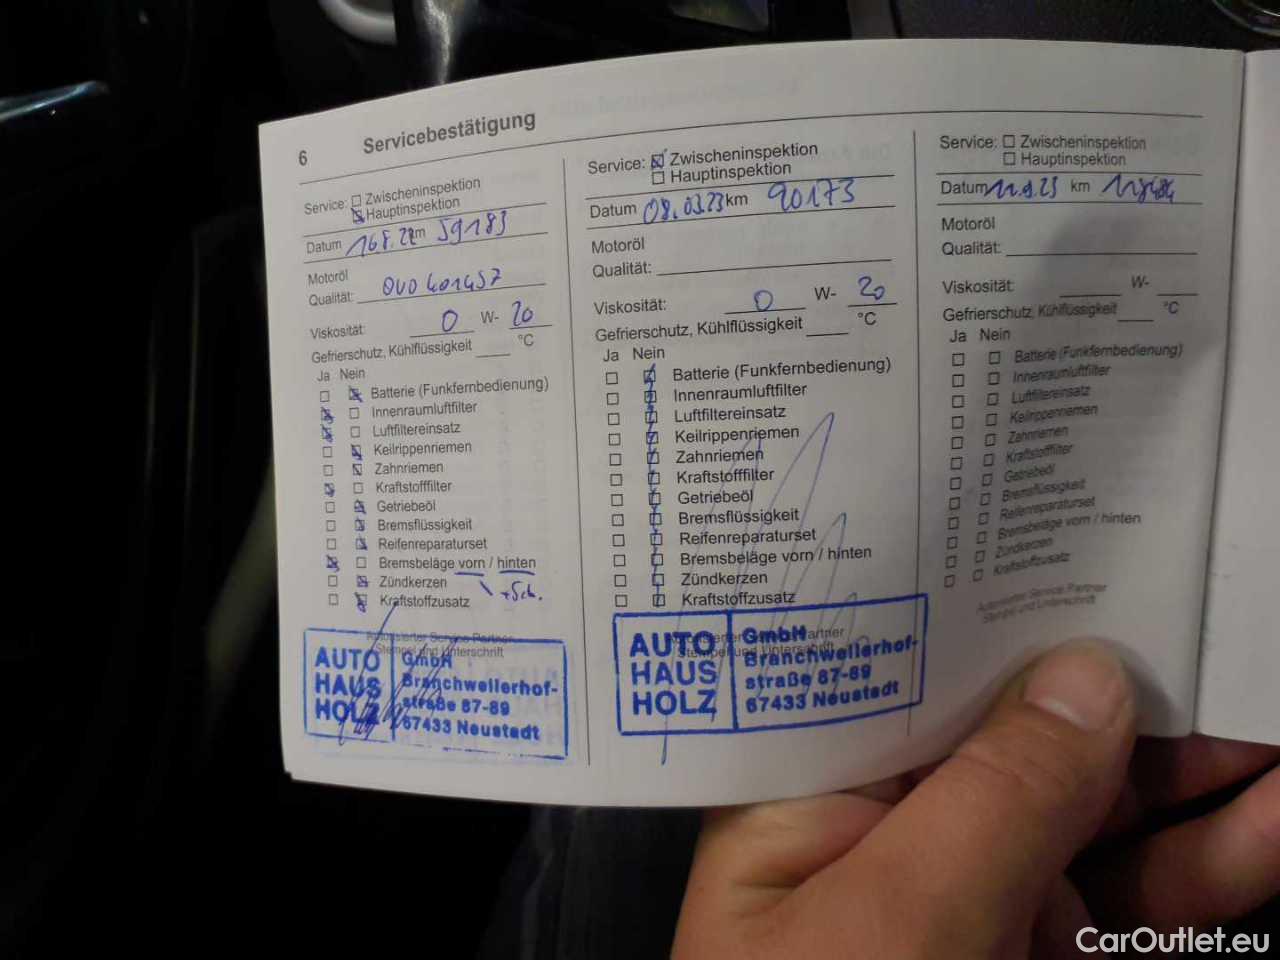 6 Servicebestätigung
Service: Zwischeninspektion
Hauptinspektion
Datum 16.8.22 km 59183
Motoröl
Qualität: OVO 401457
Viskosität: 0 W- 20
Gefrierschutz, Kühlflüssigkeit °C
Ja Nein
Batterie (Funkfernbedienung)
Innenraumluftfilter
Luftfiltereinsatz
Keilrippenriemen
Zahnriemen
Kraftstofffilter
Getriebeöl
Bremsflüssigkeit
Reifenreparaturset
Bremsbeläge vorn / hinten
Zündkerzen +Sch.
Kraftstoffzusatz
Autorisierter Service Partner
Stempel und Unterschrift
AUTO HAUS HOLZ
GmbH
Branchweilerhof-
straße 87-89
67433 Neustadt
Service: Zwischeninspektion
Hauptinspektion
Datum 08.03.23 km 90173
Motoröl
Qualität:
Viskosität: 0 W- 20
Gefrierschutz, Kühlflüssigkeit °C
Ja Nein
Batterie (Funkfernbedienung)
Innenraumluftfilter
Luftfiltereinsatz
Keilrippenriemen
Zahnriemen
Kraftstofffilter
Getriebeöl
Bremsflüssigkeit
Reifenreparaturset
Bremsbeläge vorn / hinten
Zündkerzen
Kraftstoffzusatz
Autorisierter Service Partner
Stempel und Unterschrift
AUTO HAUS HOLZ
GmbH
Branchweilerhof-
straße 87-89
67433 Neustadt
Service: Zwischeninspektion
Hauptinspektion
Datum 11.9.23 km
Motoröl
Qualität:
Viskosität: W-
Gefrierschutz, Kühlflüssigkeit °C
Ja Nein
Batterie (Funkfernbedienung)
Innenraumluftfilter
Luftfiltereinsatz
Keilrippenriemen
Zahnriemen
Kraftstofffilter
Getriebeöl
Bremsflüssigkeit
Reifenreparaturset
Bremsbeläge vorn / hinten
Zündkerzen
Kraftstoffzusatz
Autorisierter Service Partner
Stempel und Unterschrift
CarOutlet.eu